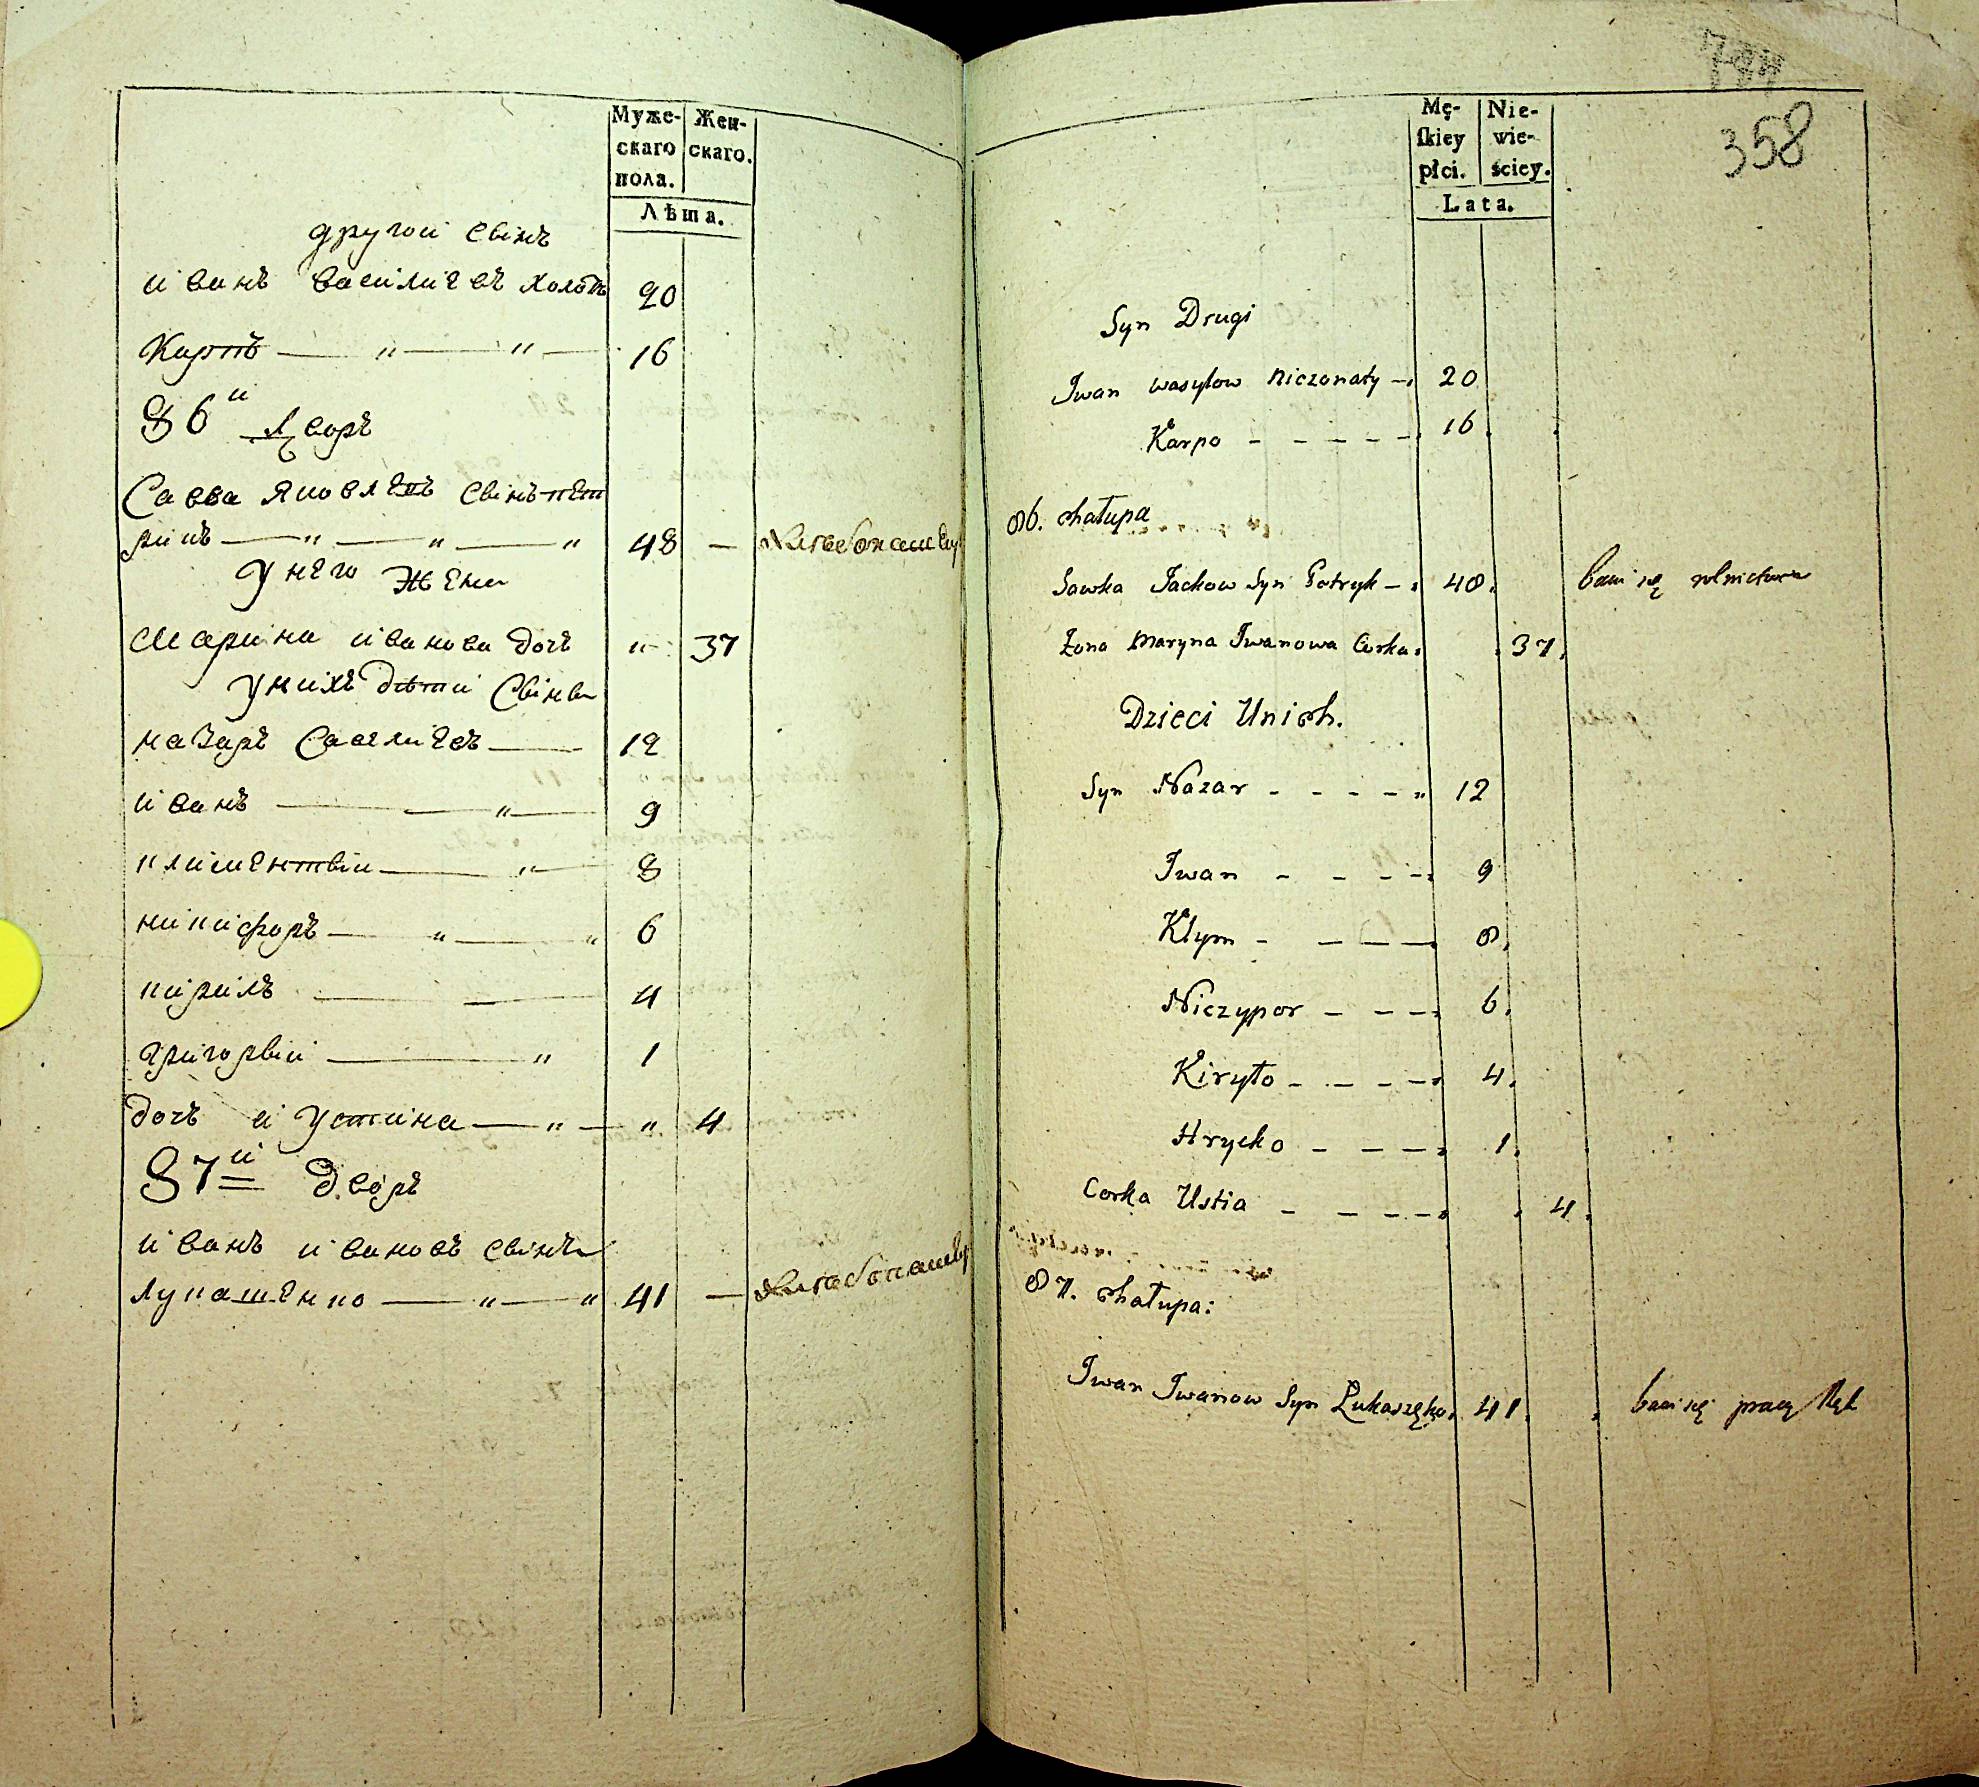 Муже-
скаго
пола.
Жен-
скаго.
Лѣта.
другои синъ
иванъ василиевъ холотъ 20
Карпъ — " — " — 16
86й дворъ
Савва яковлевъ синъ пет
рикъ — " — " — " 48 — хлебопашец
у него жена
Марина иванова дочъ " 37
у нихъ дѣти синви
назаръ Савеличевъ — 12
иванъ — — " — 9
климентии — " — 8
никифоръ — " — " 6
кирилъ — — 4
григории — " 1
дочъ иустина — " — " 4
87й дворъ
иванъ ивановъ синъ
лукашенко — " — " 41 — хлебопашец
358
Mę-
skiey
płci.
Nie-
wie-
ściey.
Lata.
Syn Drugi
Iwan wasylow Niezonaty - 20
Karpo - - - - - 16
86. chałupa
Sawka Jackow Syn Petryk - 48. bawi się rolnictwem
Żona Maryna Iwanowa Corka. 37.
Dzieci Unich.
Syn Nazar - - - - " 12
Iwan - - - - 9
Kłym - - - - 8.
Niczypor - - - 6.
Kiryło - - - - 4.
Hrycko - - - - 1.
Corka Ustia - - - - 4.
87. chałupa:
Iwan Iwanow Syn Łukaszęko. 41. bawi się pracą Rąk